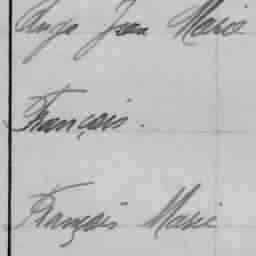 Ange Jean Marie
François.
François Marie